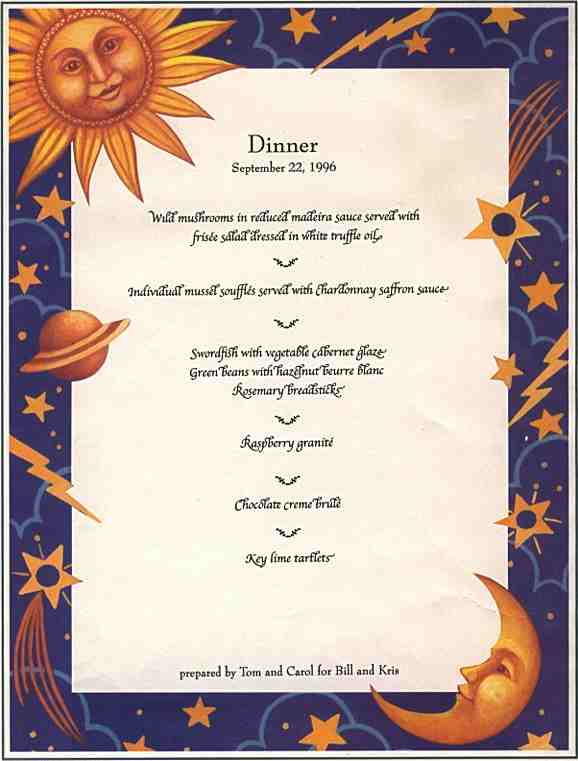 Dinner
September 22, 1996
Wild mushrooms in reduced madeira sauce served with
frisée salad dressed in white truffle oil
Individual mussel soufflés served with Chardonnay saffron sauce
Swordfish with vegetable cabernet glaze
Green beans with hazelnut beurre blanc
Rosemary breadsticks
Raspberry granité
Chocolate creme brulé
Key lime tartlets
prepared by Tom and Carol for Bill and Kris